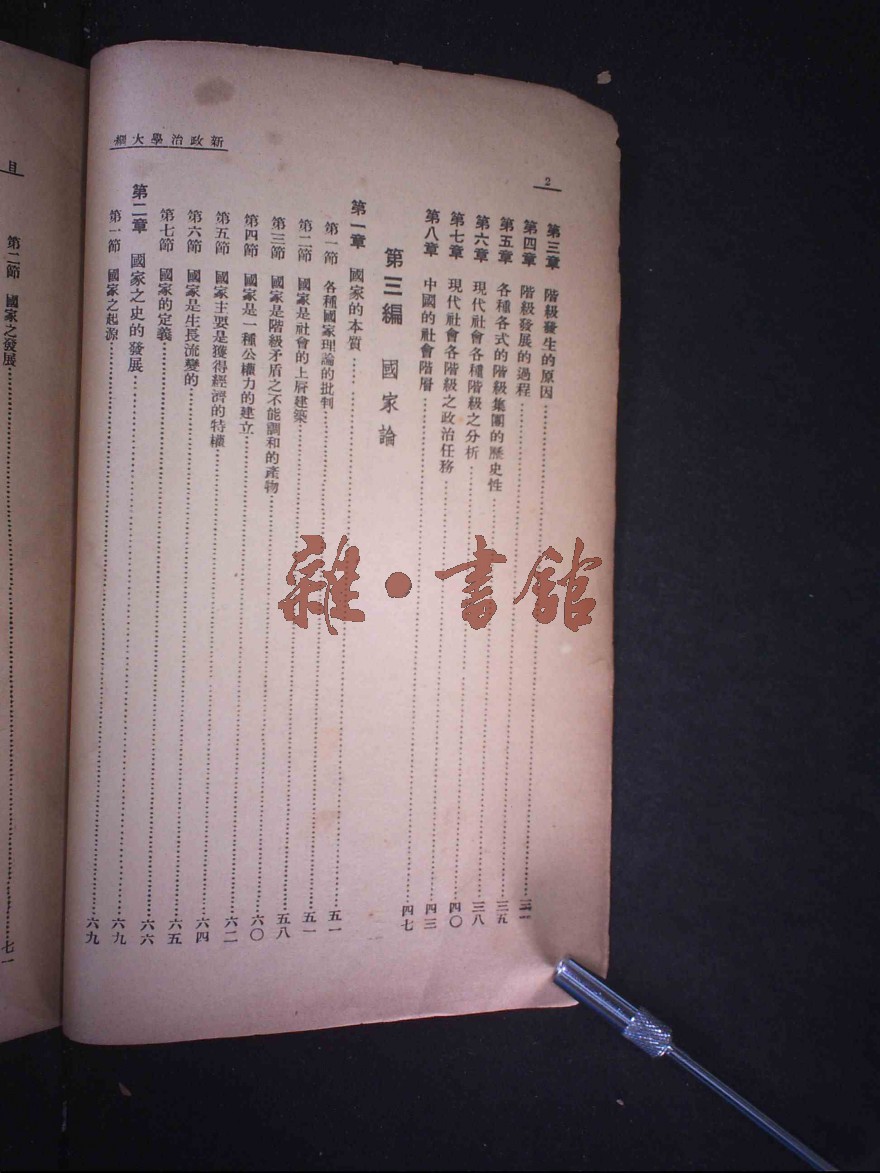 新政治學大綱
2
第三章 階級發生的原因
第四章 階級發展的過程……三五
第五章 各種各式的階級集團的歷史性……三八
第六章 現代社會各種階級之分析……四〇
第七章 現代社會各階級之政治任務……四三
第八章 中國的社會階層……四七
第三編 國家論
第一章 國家的本質……五一
第一節 各種國家理論的批判……五一
第二節 國家是社會的上層建築……五八
第三節 國家是階級矛盾之不能調和的產物……六〇
第四節 國家是一種公權力的建立……六二
第五節 國家主要是獲得經濟的特權……六四
第六節 國家是生長流變的……六五
第七節 國家的定義……六六
第二章 國家之史的發展……六九
第一節 國家之起源……六九
目
第二節 國家之發展……七一
雜·書館